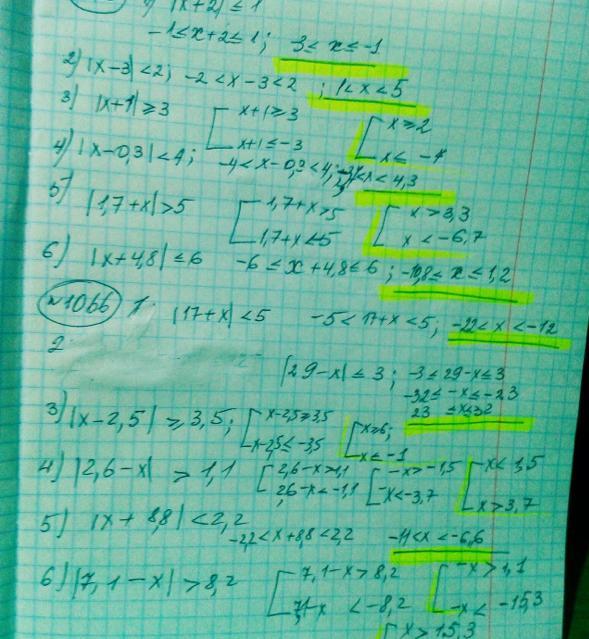 |x+2| ≤ 1
-1≤x+2≤1; -3≤ x≤-1
2) |x-3|<2; -2<x-3<2 ; 1<x<5
3) |x+1|≥3 [ x+1≥3 [ x≥2
x+1≤-3 x≤ -4
4) |x-0,3|<4; -4<x-0,3<4; <x<4,3
5) |1,7+x|>5 [ 1,7+x>5 [ x>3,3
1,7+x<-5 x<-6,7
6) |x+4,8|≤6 -6≤x+4,8≤6; -10,8≤x≤1,2
№1066 1. |17+x|<5 -5<17+x<5; -22<x<-12
2. |29-x|≤3; -3≤29-x≤3
-32≤-x≤-23
23 ≤x≤32
3) |x-2,5|≥3,5; [ x-2,5≥3,5 [ x≥6;
x-2,5≤-3,5 x≤-1
4) |2,6-x| >1,1 [ 2,6-x>1,1 [ -x>-1,5 [ x<1,5
2,6-x<-1,1 -x<-3,7 x>3,7
5) |x+8,8|<2,2
-2,2<x+8,8<2,2 -11<x<-6,6
6) |7,1-x|>8,2 [ 7,1-x>8,2 [ -x>1,1
7,1-x <-8,2 -x< -15,3
[ x>15,3